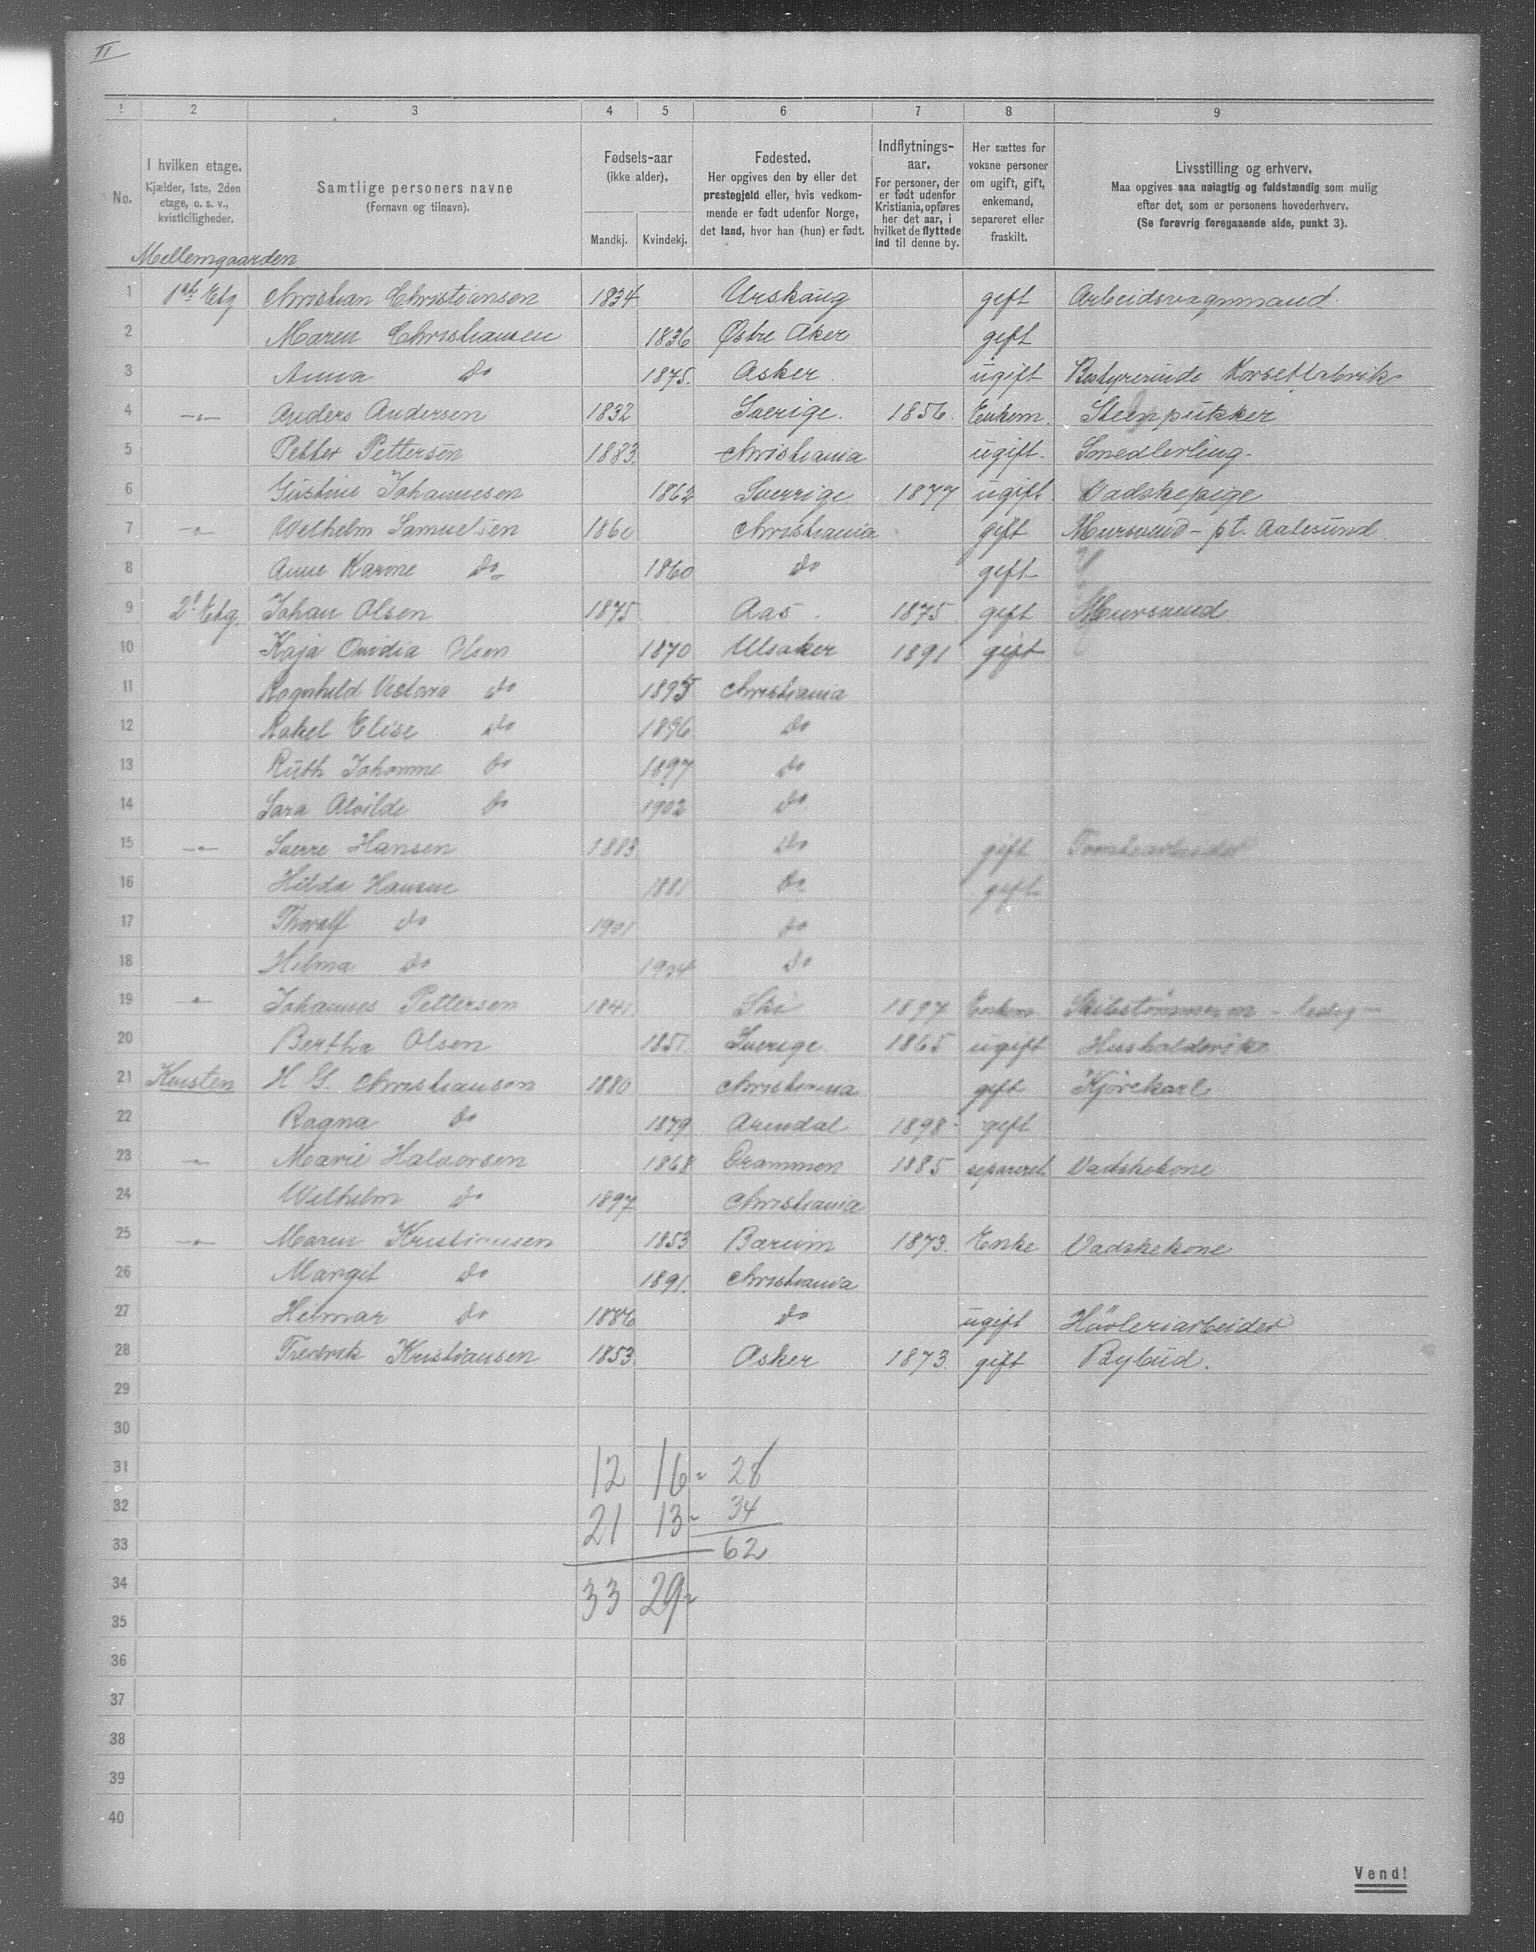 II
1 2 3 4 5 6 7 8 9
No.
I hvilken etage.
Kjælder, 1ste, 2den
etage, o. s. v.,
kvistleiligheder.
Samtlige personers navne
(Fornavn og tilnavn).
Fødsels-aar
(ikke alder).
Mandkj. Kvindekj.
Fødested.
Her opgives den by eller det
prestegjeld eller, hvis vedkom-
mende er født udenfor Norge,
det land, hvor han (hun) er født.
Indflytnings-
aar.
For personer, der
er født udenfor
Kristiania, opføres
her det aar, i
hvilket de flyttede
ind til denne by.
Her sættes for
voksne personer
om ugift, gift,
enkemand,
separeret eller
fraskilt.
Livsstilling og erhverv.
Maa opgives saa nøiagtig og fuldstændig som mulig
efter det, som er personens hovederhverv.
(Se forøvrig foregaaende side, punkt 3).
Mellemgaarden
1 1ste Etg Christian Christiansen 1834 Urskaug gift Arbeidsvagnmand
2 Maren Christiansen 1836 Østre Aker gift
3 Anna do 1875. Asker ugift Bestyrerinde Korsetfabrik
4 —"— Anders Andersen 1832 Sverige. 1856. Enkem. Stenpukker
5 Petter Pettersen 1883. Christiania ugift. Smedlerling.
6 Johannesen 1862 Sverrige 1877 ugift Vadskepige
7 —"— Wilhelm Samuelsen 1860 Christiania gift Mursvend - pt. Aalesund
8 Anne Karine do 1860 do gift
9 2d Etg. Johan Olsen 1875 Aas. 1875 gift Mursvend
10 Kaja Ovidia Olsen 1870 Ulsaker 1891 gift
11 Ragnhild do 1895 Christiania
12 Rakel Elise do 1896 do
13 Ruth Johanne do 1897 do
14 Sara Alvilde do 1902 do
15 —"— Sverre Hansen 1883 do gift
16 Hilda Hansen 1881 do gift
17 Thoralf do 1901 do
18 Hilma do 1904 do
19 —"— Johannes Pettersen 1841 Ski 1897 Enkem Skibstømmerm - ledig -
20 Bertha Olsen 1851. Sverige 1865 ugift Husholderske
21 Kvisten H G. Christiansen 1880 Christiania gift Kjørekarl
22 Ragna do 1879 Arendal 1898 gift
23 —"— Marie Halvorsen 1868 Drammen 1885 separeret Vadskekone
24 Wilhelm do 1897 Christiania
25 —"— Maren Kristiansen 1853 Bærum 1873. Enke Vadskekone
26 Margit do 1891. Christiania
27 Helmar do 1886 do ugift Høvleriarbeider
28 Fredrik Kristiansen 1853 Asker 1873. gift Bybud.
29
30
31 12 16 - 28
32 21 13 - 34
33 62
34 33 29
35
36
37
38
39
40
Vend!